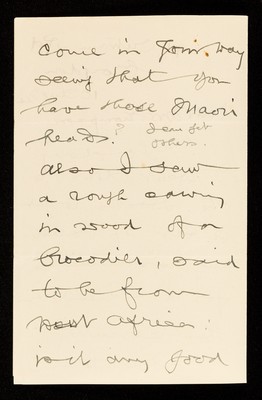 come in your way
seeing that you
have those Maori
heads.? I can get
others.
also I saw
a rough carving
in wood of a
Crocodile, said
to be from
west Africa:
is it any good